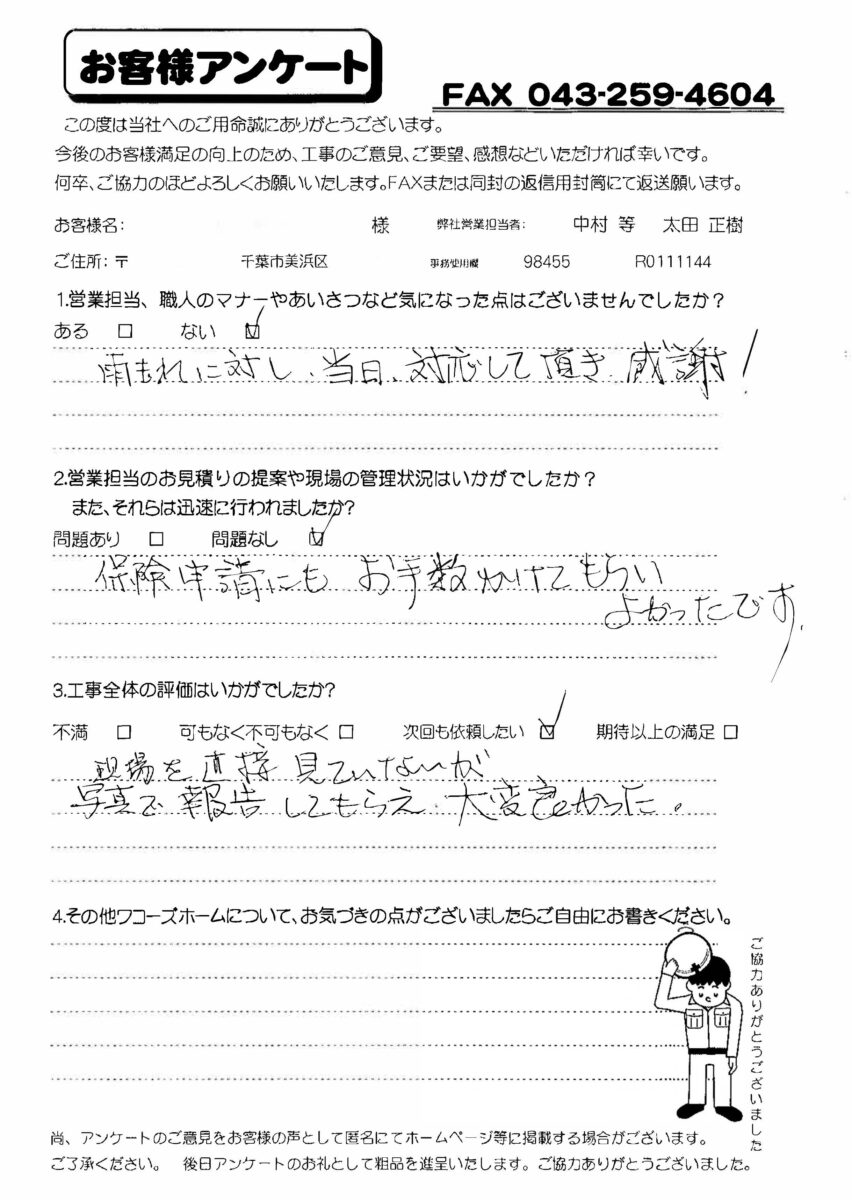 お客様アンケート
FAX 043-259-4604
この度は当社へのご用命誠にありがとうございます。
今後のお客様満足の向上のため、工事のご意見、ご要望、感想などいただければ幸いです。
何卒、ご協力のほどよろしくお願いいたします。FAXまたは同封の返信用封筒にて返送願います。
お客様名: 様 弊社営業担当者: 中村 等 太田 正樹
ご住所:〒 千葉市美浜区 事務使用欄 98455 R0111144
1.営業担当、職人のマナーやあいさつなど気になった点はございませんでしたか?
ある □ ない ☑
雨もれに対し、当日、対応して頂き 感謝!
2.営業担当のお見積りの提案や現場の管理状況はいかがでしたか?
また、それらは迅速に行われましたか?
問題あり □ 問題なし ☑
保険申請にも お手数かけてもらい
よかったです。
3.工事全体の評価はいかがでしたか?
不満 □ 可もなく不可もなく □ 次回も依頼したい ☑ 期待以上の満足 □
現場を直接見ていないが
写真で報告してもらえ、大変良かった。
4.その他ワコーズホームについて、お気づきの点がございましたらご自由にお書きください。
ご協力ありがとうございました
尚、アンケートのご意見をお客様の声として匿名にてホームページ等に掲載する場合がございます。
ご了承ください。 後日アンケートのお礼として粗品を進呈いたします。ご協力ありがとうございました。